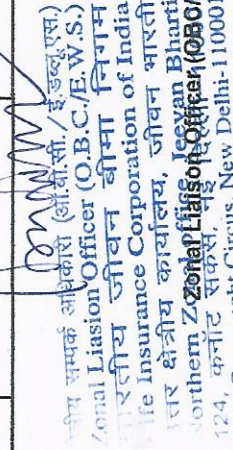 क्षेत्रीय सम्पर्क अधिकारी (ओ.बी.सी. / ई.डब्लू.एस.)
Zonal Liasion Officer (O.B.C./E.W.S.)
भारतीय जीवन बीमा निगम
Life Insurance Corporation of India
उत्तर क्षेत्रीय कार्यालय, जीवन भारती
Northern Zonal Office, Jeevan Bharti
Zonal Liaison Officer (OBC/
124, कनॉट सर्कस, नई दिल्ली-110001
Circus, New Delhi-110001